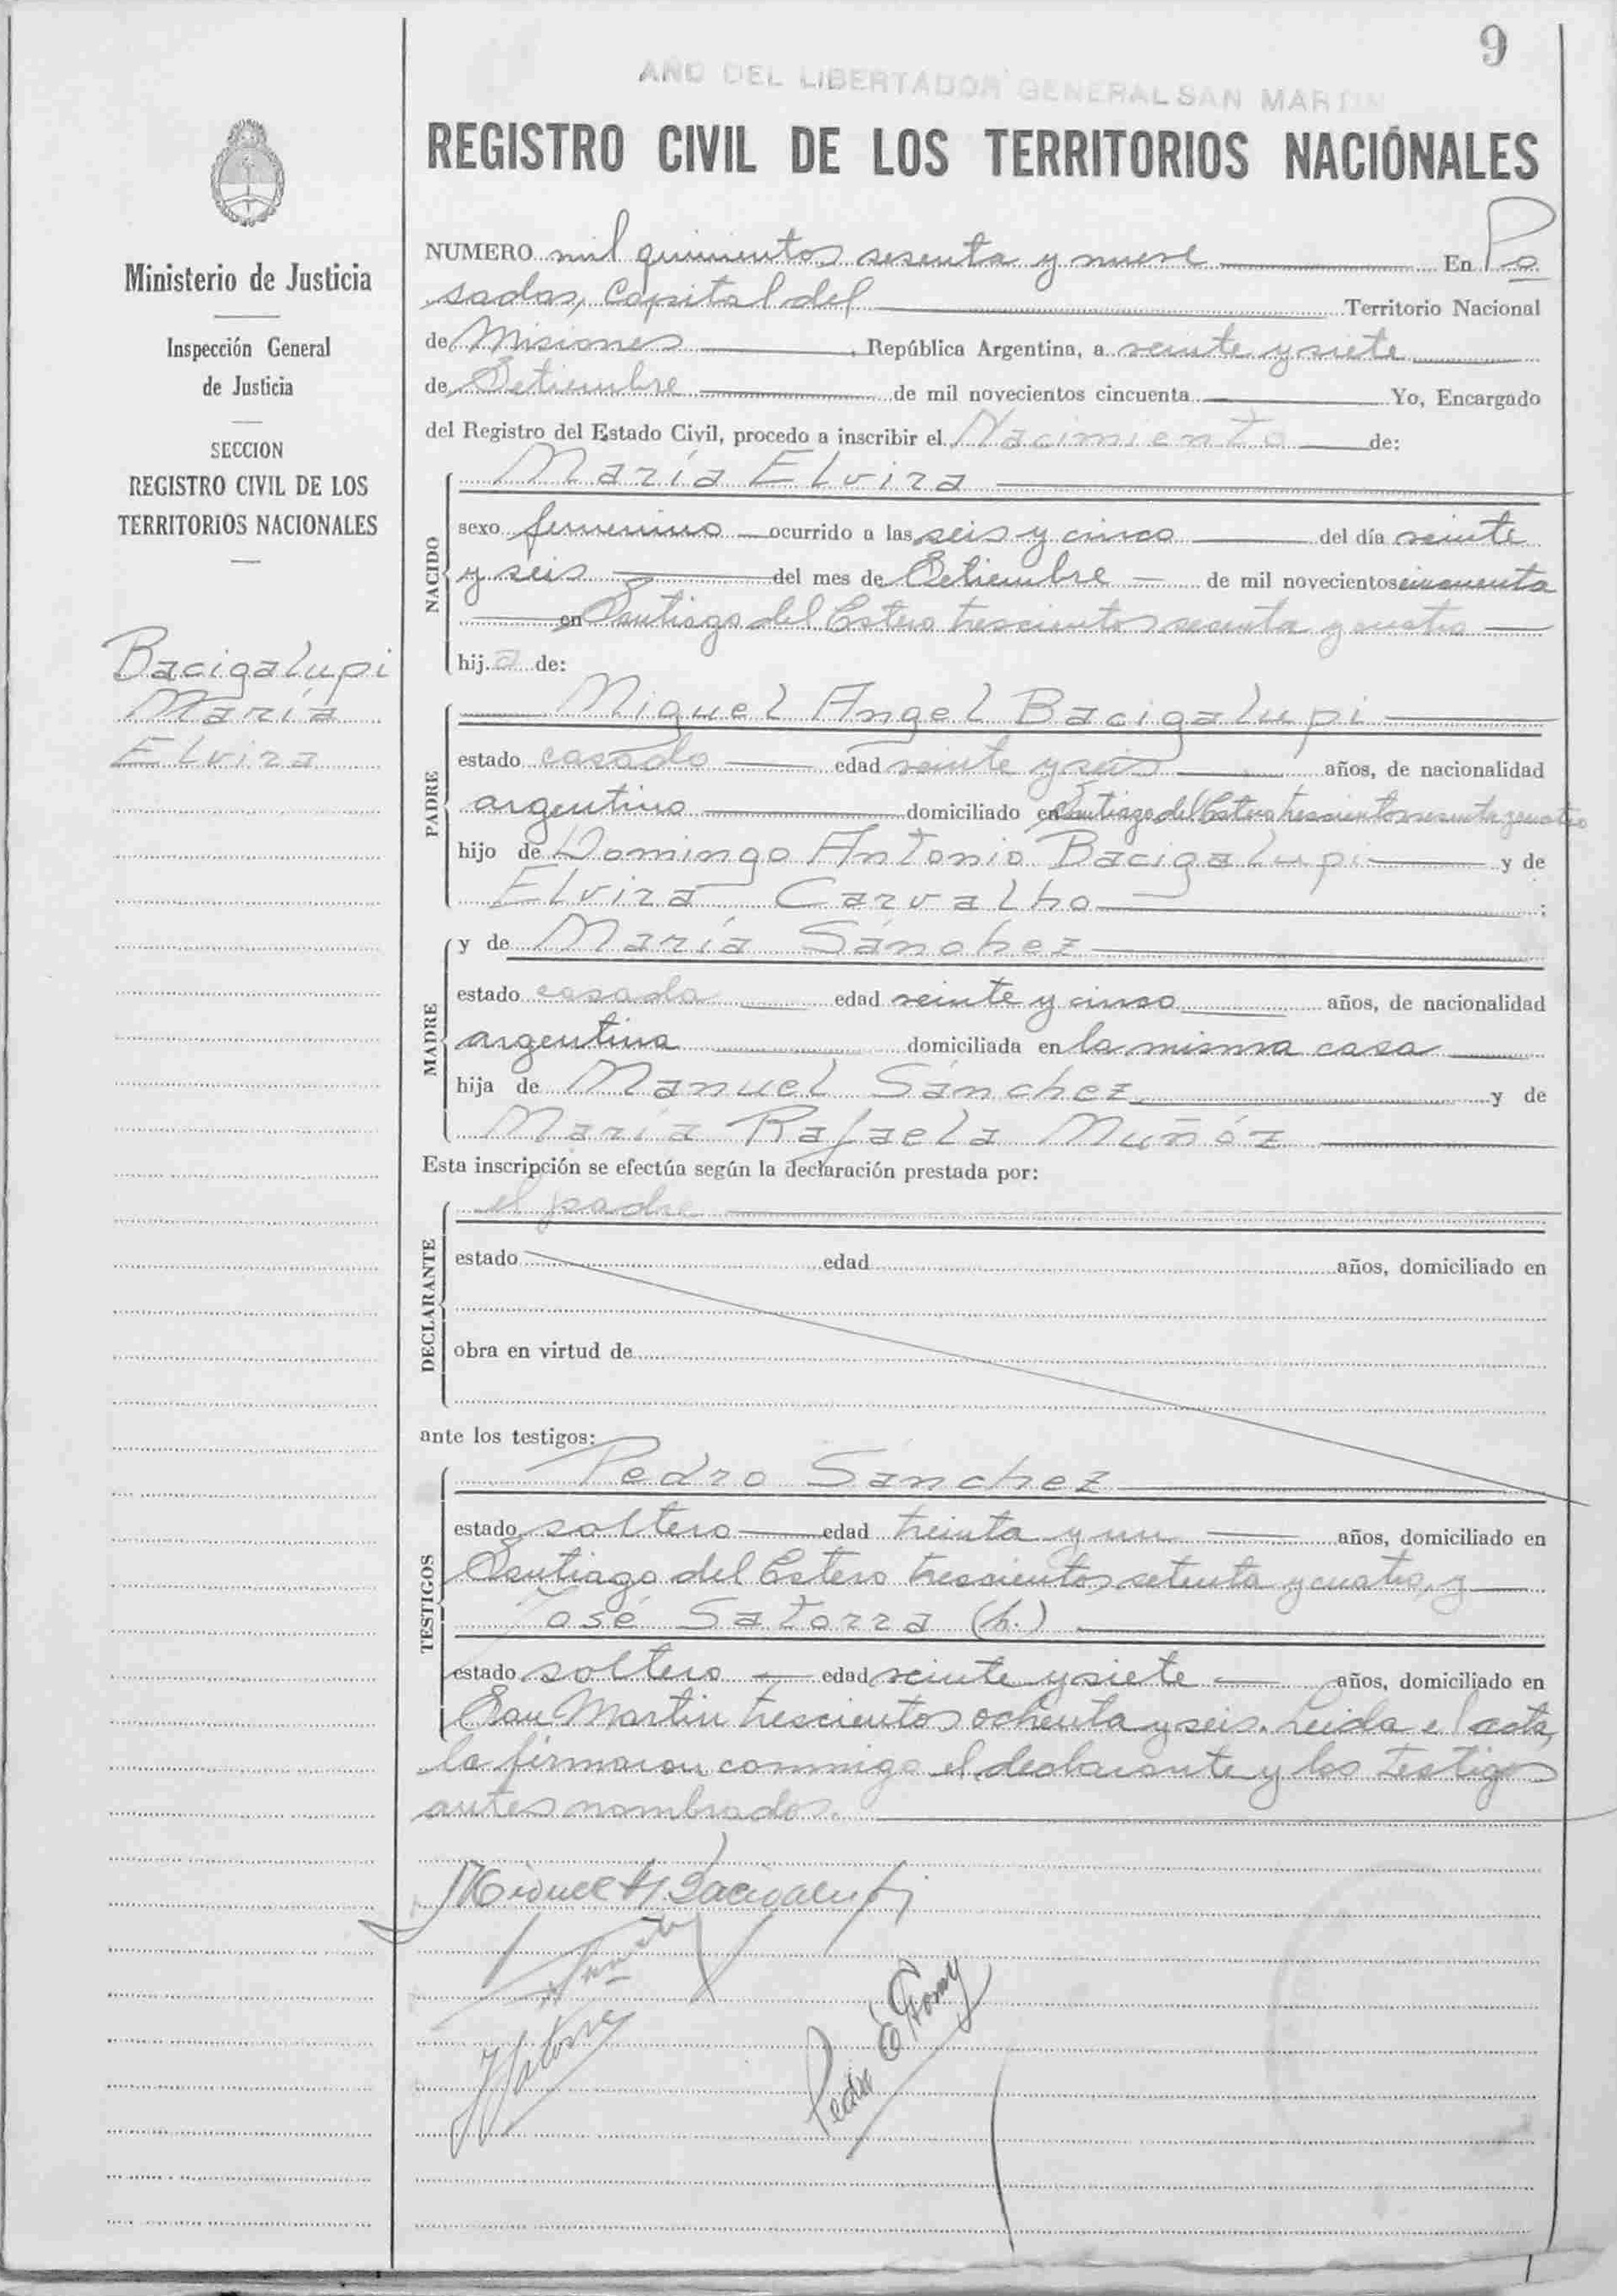 9
AÑO DEL LIBERTADOR GENERAL SAN MARTIN
REGISTRO CIVIL DE LOS TERRITORIOS NACIONALES
Ministerio de Justicia
Inspección General
de Justicia
SECCION
REGISTRO CIVIL DE LOS
TERRITORIOS NACIONALES
Bacigalupi
María
Elvira
NUMERO mil quinientos sesenta y nueve En Po
sadas, Capital del Territorio Nacional
de Misiones, República Argentina, a veinte y siete
de Setiembre de mil novecientos cincuenta Yo, Encargado
del Registro del Estado Civil, procedo a inscribir el Nacimiento de:
NACIDO
María Elvira
sexo femenino ocurrido a las seis y cinco del día veinte
y seis del mes de Setiembre de mil novecientos cincuenta
en Santiago del Estero trescientos sesenta y cuatro
hija de:
PADRE
Miguel Angel Bacigalupi
estado casado edad veinte y seis años, de nacionalidad
argentino domiciliado en Santiago del Estero trescientos sesenta y cuatro
hijo de Domingo Antonio Bacigalupi y de
Elvira Carvalho ;
MADRE
y de María Sánchez
estado casada edad veinte y cinco años, de nacionalidad
argentina domiciliada en la misma casa
hija de Manuel Sánchez y de
María Rafaela Muñóz
Esta inscripción se efectúa según la declaración prestada por:
DECLARANTE
el padre
estado edad años, domiciliado en
obra en virtud de
ante los testigos:
TESTIGOS
Pedro Sánchez
estado soltero edad treinta y un años, domiciliado en
Santiago del Estero trescientos setenta y cuatro, y
José Satorra (h.)
estado soltero edad veinte y siete años, domiciliado en
San Martin trescientos ochenta y seis. Leida el acta,
la firmaron conmigo el declarante y los testigos
antes nombrados.
Miguel A. Bacigalupi
Pedro